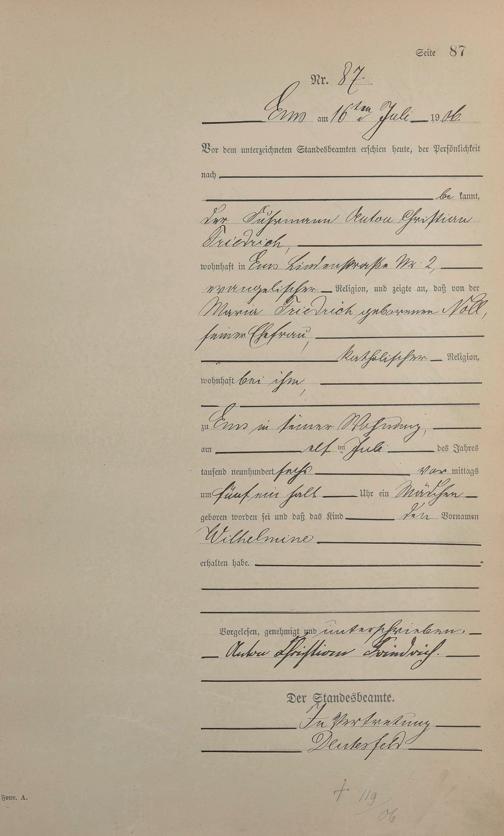 Seite 87
Nr. 87.
Ems am 16ten Juli 1906.
Vor dem unterzeichneten Standesbeamten erschien heute, der Persönlichkeit
nach
be kannt,
der Fuhrmann Anton Christian
Friedrich,
wohnhaft in Ems Lindenstraße Nr 2,
evangelischer Religion, und zeigte an, daß von der
Maria Friedrich geborenen Noll,
seiner Ehefrau,
katholischer Religion,
wohnhaft bei ihm,
zu Ems in seiner Wohnung,
am elf ten Juli des Jahres
tausend neunhundert sechs vor mittags
um fünf ein halb Uhr ein Mädchen
geboren worden sei und daß das Kind den Vornamen
Wilhelmine
erhalten habe.
Vorgelesen, genehmigt und unterschrieben.
Anton Christian Friedrich.
Der Standesbeamte.
In Vertretung
Form. A.
+ 119/06